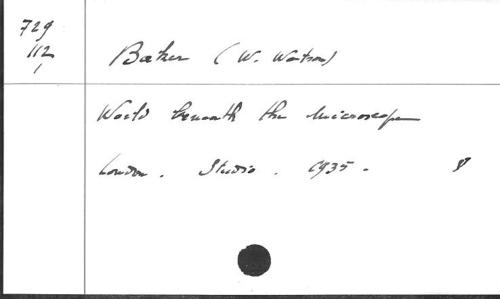 729
112
1
Baker (W. Watson)
World beneath the microscope
London. Studio. 1935.